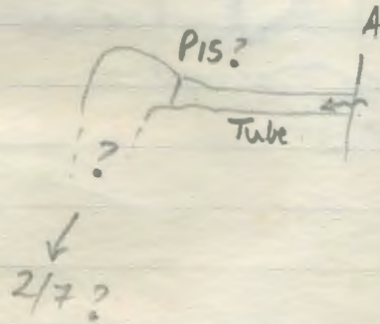 A
P15?
Tube
?
2/7?